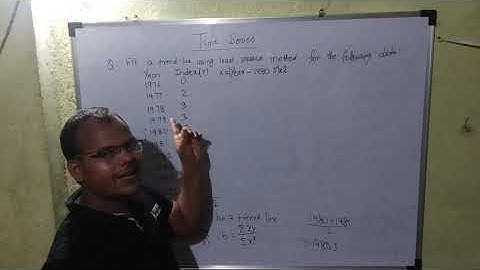 Time Series
Q: Fit a trend line using least square method for the following data:
Year Index(Y) X=(Year-1980.5)x2
1976 0
1977 2
1978 3
1979 3
1980
1981
be a trend line
b = Σxy/Σx²
1980+1981/2
=1980.5